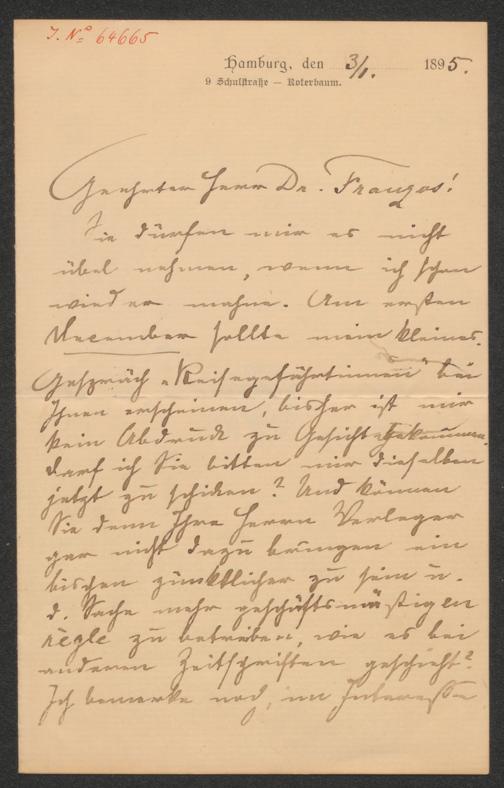 J. Nº 64665
Hamburg, den 3/I. 1895.
9 Schulstraße — Roterbaum.
Geehrter Herr Dr. Franzos!
Sie dürfen mir es nicht
übel nehmen, wenn ich schon
wieder mahne. Am ersten
December sollte mein kleines
Gespräch „Reisegefährtinnen" bei
Ihnen erscheinen, bisher ist mir
kein Abdruck zu Gesicht gekommen.
darf ich Sie bitten mir dieselben
jetzt zu schicken? Und können
Sie denn Ihre Herrn Verleger
gar nicht dazu bringen ein
bischen pünktlicher zu sein u.
d. Sache mehr geschäftsmäßigen
zu betreiben, wie es bei
anderen Zeitschriften geschieht?
Ich bemerke noch, im Interesse